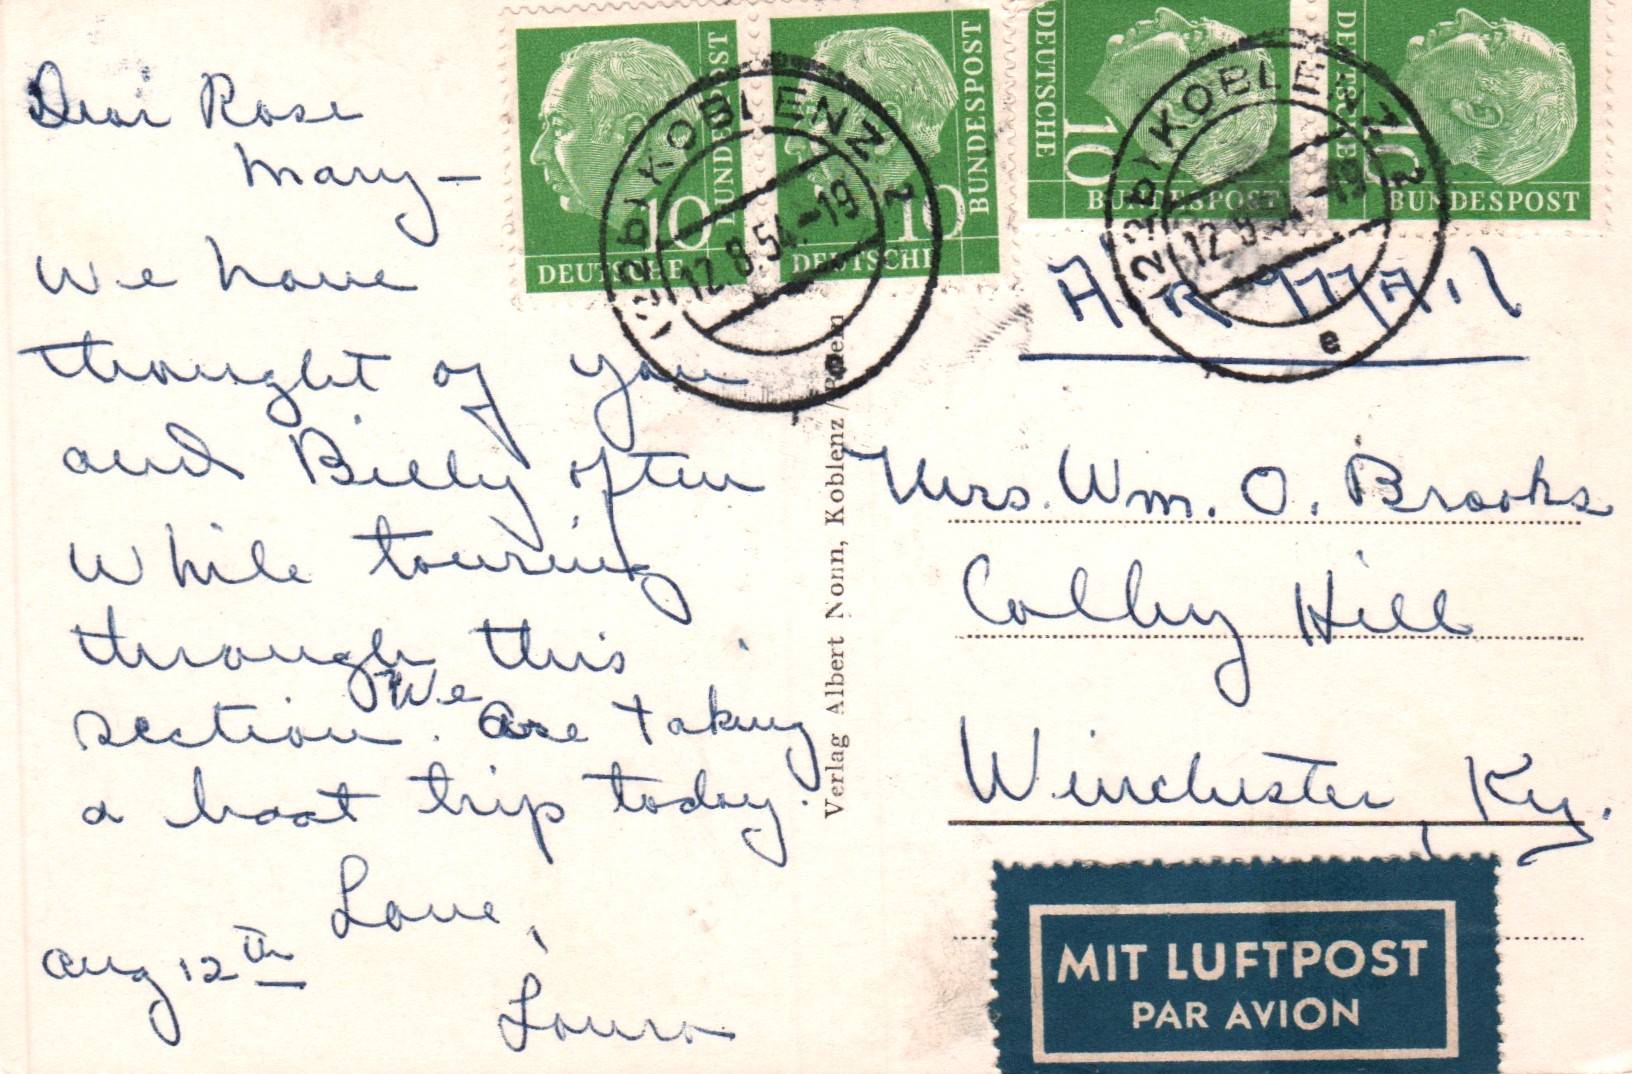 Dear Rose
Mary—
We have
thought of you
and Billy often
while touring
through this
section. We are taking
a boat trip today.
Love,
Aug 12th
Laura
DEUTSCHE BUNDESPOST 10
DEUTSCHE BUNDESPOST 10
DEUTSCHE BUNDESPOST 10
DEUTSCHE BUNDESPOST 10
KOBLENZ 2
12.8.54.-19
e
KOBLENZ 2
12.8.54.-19
e
AIR MAIL
Verlag Albert Nonn, Koblenz /
Mrs. Wm. O. Brooks
Colby Hill
Winchester, Ky.
MIT LUFTPOST
PAR AVION